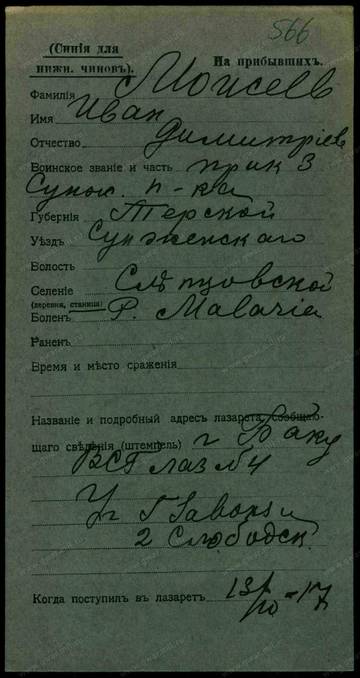 566
(Синія для
нижн. чиновъ).
На прибывшихъ.
Фамилія Моисеев
Имя Иван
Отчество Димитріев
Воинское званіе и часть прик 3
Сунж. п-ка
Губернія Терской
Уѣздъ Сунженскаго
Волость
Селеніе Слѣпцовской
(деревня, станица)
Боленъ P. Malaria
Раненъ
Время и мѣсто сраженія
Названіе и подробный адресъ лазарета, сообщаю-
щаго свѣдѣнія (штемпель) г Баку
ВСГ лаз №4
Уг
2 Слободск.
Когда поступилъ въ лазаретъ 13/10-17